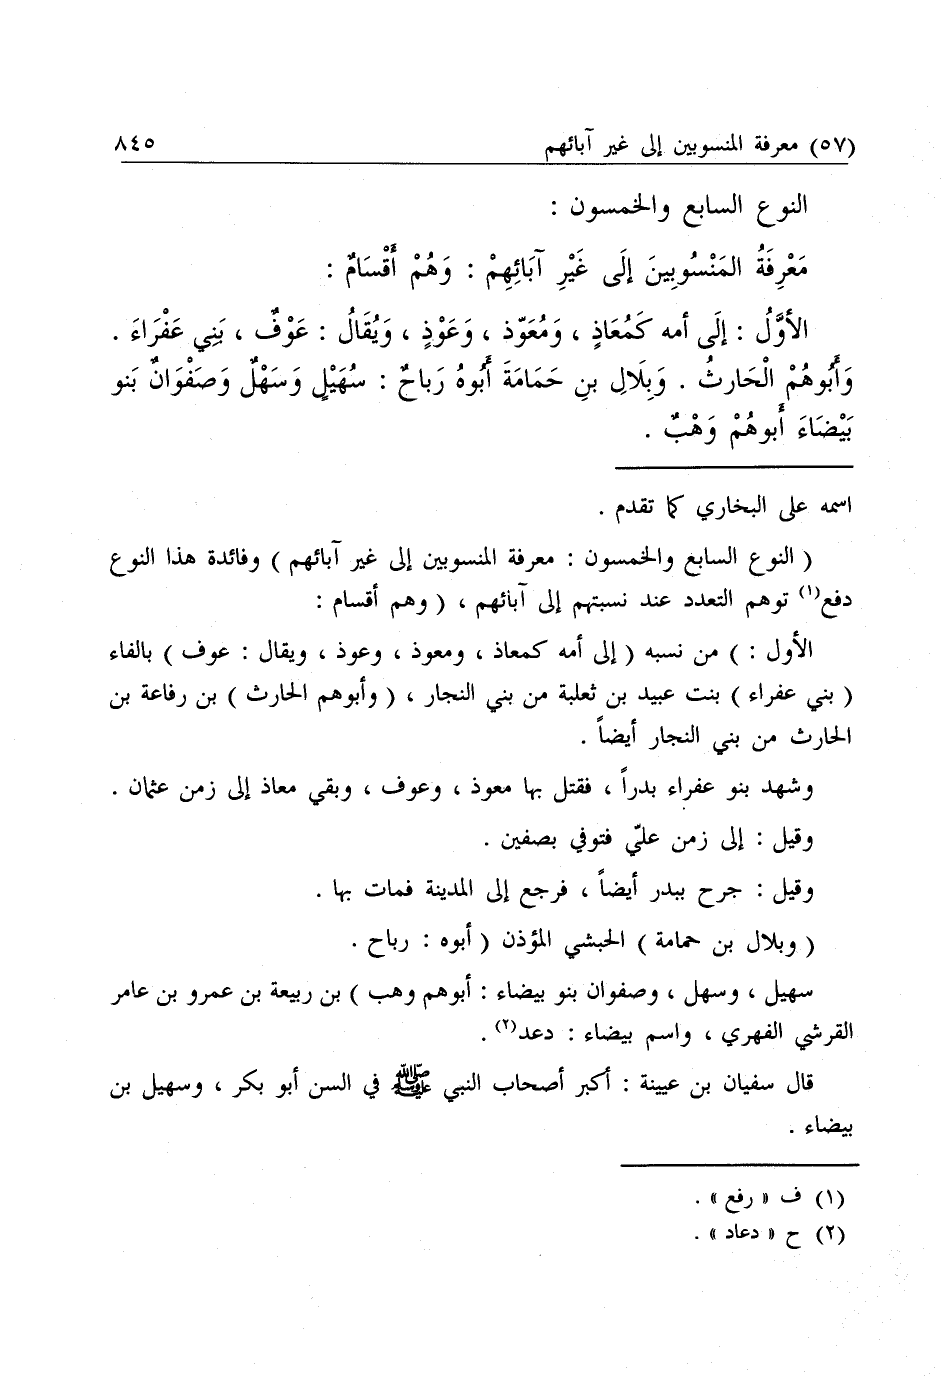 (٥٧) معرفة المنسوبين إلى غير آبائهم ٨٤٥
النوع السابع والخمسون :
مَعْرِفَةُ المَنْسُوبِينَ إلَى غَيْرِ آبَائِهِمْ : وَهُمْ أَقْسَامٌ :
الأوَّلُ : إلَى أمه كَمُعَاذٍ ، وَمُعَوّذ ، وَعَوْذٍ ، وَيُقَالُ : عَوْفٌ ، بَنِي عَفْرَاءَ .
وَأَبُوهُمْ الْحَارثُ . وَبِلَالِ بنِ حَمَامَةَ أَبُوهُ رَباحٌ : سُهَيْلٍ وَسَهْلٌ وَصَفْوَانٌ بَنو
بَيْضَاءَ أَبوهُمْ وَهْبٌ .
اسمه على البخاري كما تقدم .
( النوع السابع والخمسون : معرفة المنسوبين إلى غير آبائهم ) وفائدة هذا النوع
دفع(١) توهم التعدد عند نسبتهم إلى آبائهم ، ( وهم أقسام :
الأول : ) من نسبه ( إلى أمه كمعاذ ، ومعوذ ، وعوذ ، ويقال : عوف ) بالفاء
( بني عفراء ) بنت عبيد بن ثعلبة من بني النجار ، ( وأبوهم الحارث ) بن رفاعة بن
الحارث من بني النجار أيضاً .
وشهد بنو عفراء بدراً ، فقتل بها معوذ ، وعوف ، وبقي معاذ إلى زمن عثمان .
وقيل : إلى زمن عليّ فتوفي بصفين .
وقيل : جرح ببدر أيضاً ، فرجع إلى المدينة فمات بها .
( وبلال بن حمامة ) الحبشي المؤذن ( أبوه : رباح .
سهيل ، وسهل ، وصفوان بنو بيضاء : أبوهم وهب ) بن ربيعة بن عمرو بن عامر
القرشي الفهري ، واسم بيضاء : دعد(٢) .
قال سفيان بن عيينة : أكبر أصحاب النبي ﷺ في السن أبو بكر ، وسهيل بن
بيضاء .
(١) ف « رفع » .
(٢) ح « دعاد » .